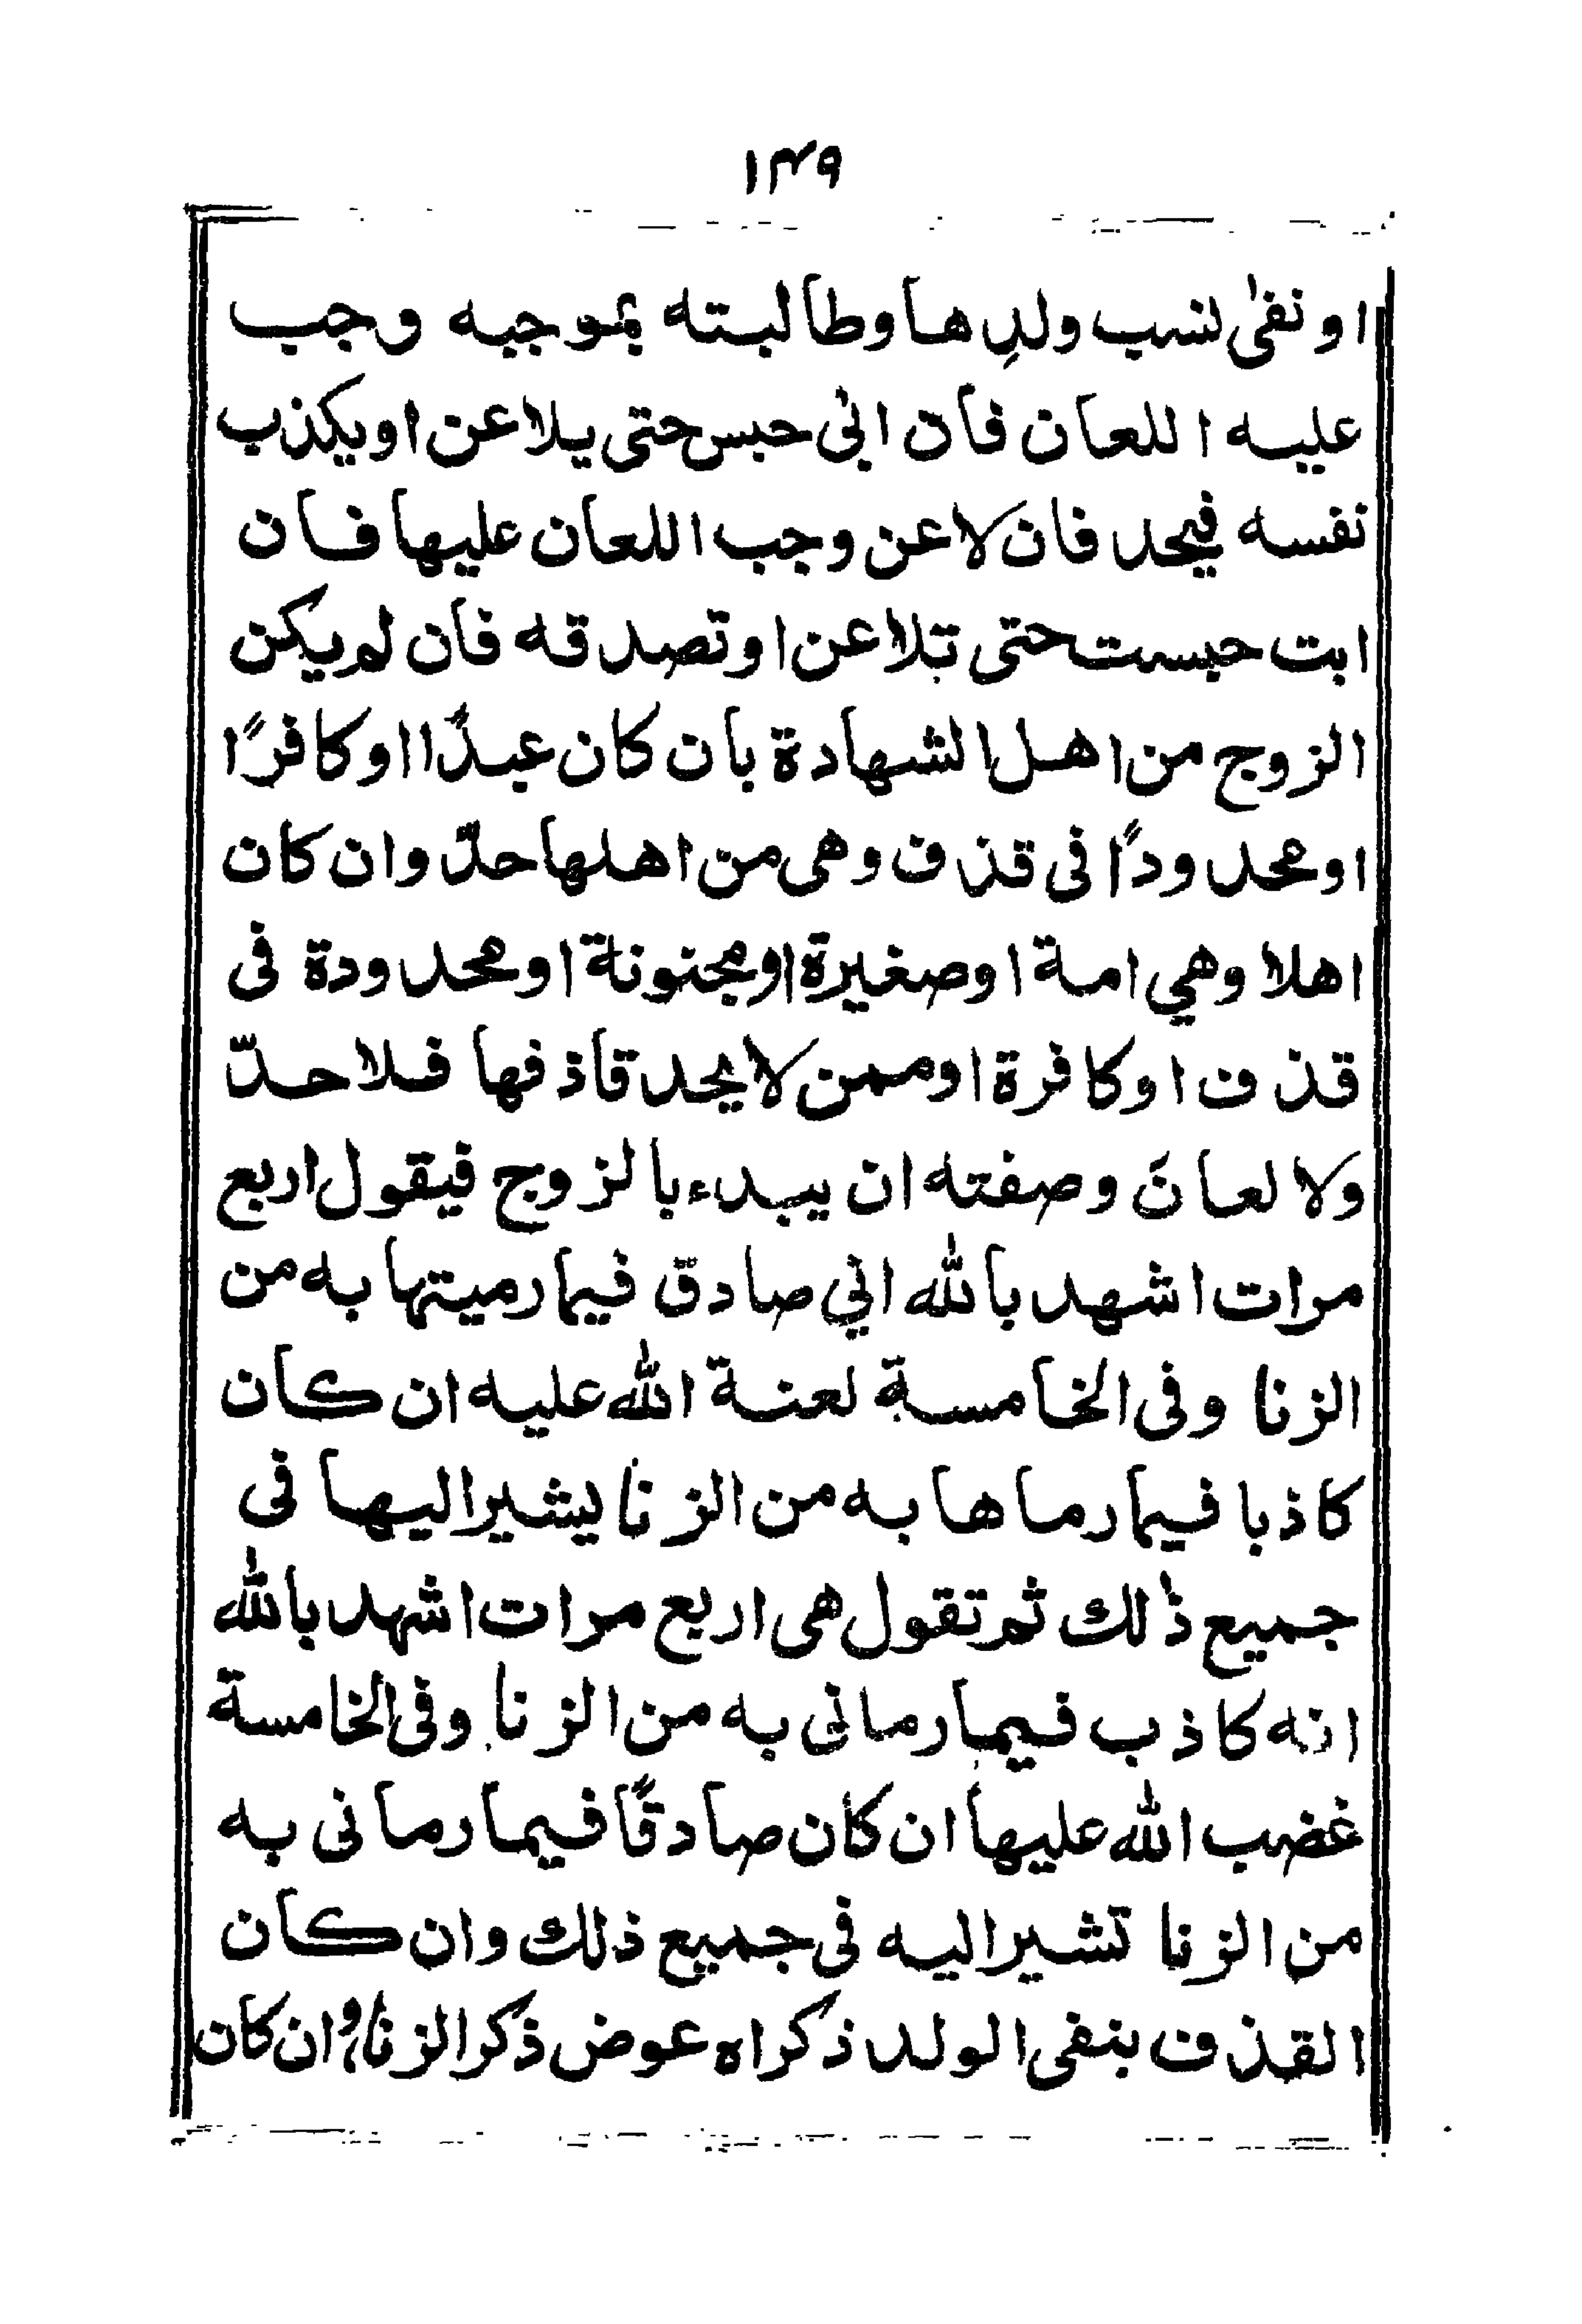 ١٣٩
او نفیٰ نسب ولدِ ها وطالبته بموجبه وجب
عليه اللعان فان ابىٰ حبس حتى يلاعن اويكذب
نفسه فيحد فان لاعن وجب اللعان عليها فان
ابت حبست حتى تلاعن اوتصدقه فان لم يكن
الزوج من اهل الشهادة بان كان عبدًا او كافرًا
او محدودًا فى قذف وهى من اهلها حدّ وان كان
اهلا وهي امة اوصغيرة اومجنونة اومحدودة فى
قذف اوكافرة اوممن لايحد قاذفها فلاحدّ
ولا لعانَ وصفته ان يبدء بالزوج فيقول اربع
مرات اشهد بالله اني صادق فيما رميتها به من
الزنا وفى الخامسة لعنة الله عليه ان كان
كاذبا فيما رماها به من الزنا يشير اليها فى
جميع ذٰلك ثم تقول هى اربع مرات اشهد بالله
انه كاذب فيما رمانى به من الزنا وفى الخامسة
غضب الله عليها ان كان صادقًا فيما رمانى به
من الزنا تشير اليه فى جميع ذلك وان كان
القذف بنفى الولد ذكراه عوض ذكر الزنا وان كان